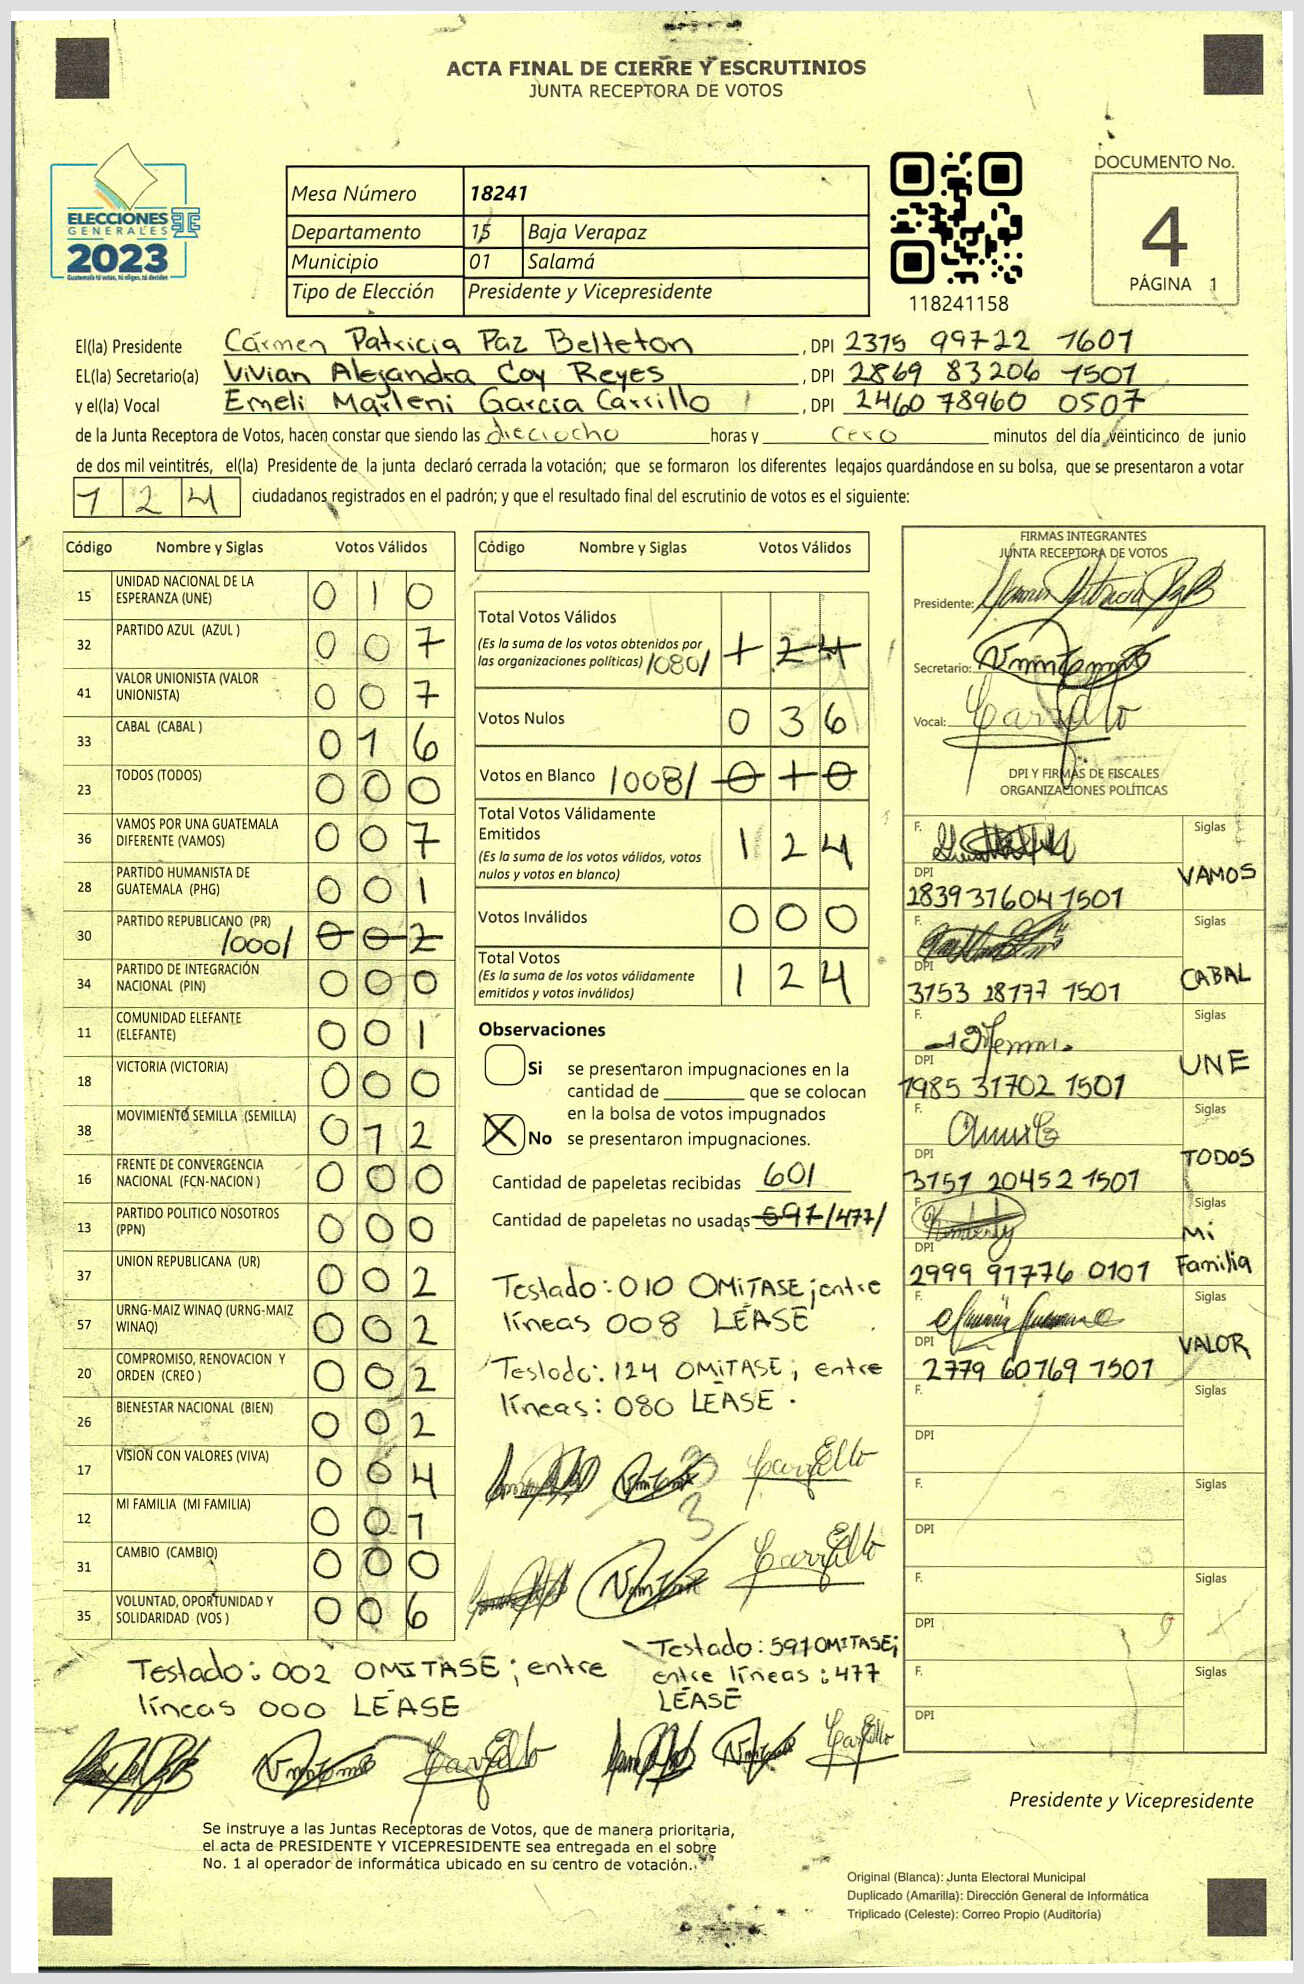 ACTA FINAL DE CIERRE Y ESCRUTINIOS
JUNTA RECEPTORA DE VOTOS
ELECCIONES
GENERALES
2023
Guatemala tú votas, tú eliges, tú decides
Mesa Número 18241
Departamento 15 Baja Verapaz
Municipio 01 Salamá
Tipo de Elección Presidente y Vicepresidente
118241158
DOCUMENTO No.
4
PÁGINA 1
El(la) Presidente Carmen Patricia Paz Belteton , DPI 2375 99722 1601
EL(la) Secretario(a) Vivian Alejandra Coy Reyes , DPI 2869 83206 1501
y el(la) Vocal Emeli Marleni García Carrillo , DPI 2460 78960 0507
de la Junta Receptora de Votos, hacen constar que siendo las dieciocho horas y cero minutos del día veinticinco de junio
de dos mil veintitrés, el(la) Presidente de la junta declaró cerrada la votación; que se formaron los diferentes legajos guardándose en su bolsa, que se presentaron a votar
124 ciudadanos registrados en el padrón; y que el resultado final del escrutinio de votos es el siguiente:
Código Nombre y Siglas Votos Válidos
15 UNIDAD NACIONAL DE LA ESPERANZA (UNE) 0 1 0
32 PARTIDO AZUL (AZUL ) 0 0 7
41 VALOR UNIONISTA (VALOR UNIONISTA) 0 0 7
33 CABAL (CABAL ) 0 1 6
23 TODOS (TODOS) 0 0 0
36 VAMOS POR UNA GUATEMALA DIFERENTE (VAMOS) 0 0 7
28 PARTIDO HUMANISTA DE GUATEMALA (PHG) 0 0 1
30 PARTIDO REPUBLICANO (PR) /000/ 0 0 2
34 PARTIDO DE INTEGRACIÓN NACIONAL (PIN) 0 0 0
11 COMUNIDAD ELEFANTE (ELEFANTE) 0 0 1
18 VICTORIA (VICTORIA) 0 0 0
38 MOVIMIENTO SEMILLA (SEMILLA) 0 1 2
16 FRENTE DE CONVERGENCIA NACIONAL (FCN-NACION ) 0 0 0
13 PARTIDO POLITICO NOSOTROS (PPN) 0 0 0
37 UNION REPUBLICANA (UR) 0 0 2
57 URNG-MAIZ WINAQ (URNG-MAIZ WINAQ) 0 0 2
20 COMPROMISO, RENOVACION Y ORDEN (CREO ) 0 0 2
26 BIENESTAR NACIONAL (BIEN) 0 0 2
17 VISION CON VALORES (VIVA) 0 0 4
12 MI FAMILIA (MI FAMILIA) 0 0 1
31 CAMBIO (CAMBIO) 0 0 0
35 VOLUNTAD, OPORTUNIDAD Y SOLIDARIDAD (VOS ) 0 0 6
Testado: 002 OMITASE; entre
líneas 000 LEASE
Código Nombre y Siglas Votos Válidos
Total Votos Válidos
(Es la suma de los votos obtenidos por
las organizaciones políticas) /080/ 1 2 4
Votos Nulos 0 3 6
Votos en Blanco /008/ 0 1 0
Total Votos Válidamente
Emitidos 1 2 4
(Es la suma de los votos válidos, votos
nulos y votos en blanco)
Votos Inválidos 0 0 0
Total Votos 1 2 4
(Es la suma de los votos válidamente
emitidos y votos inválidos)
Observaciones
Si se presentaron impugnaciones en la
cantidad de ________ que se colocan
en la bolsa de votos impugnados
No se presentaron impugnaciones.
Cantidad de papeletas recibidas 601
Cantidad de papeletas no usadas 597 /477/
Testado: 010 OMITASE; entre
líneas 008 LÉASE
Testado: 124 OMITASE; entre
líneas: 080 LEASE.
Testado: 597 OMITASE;
entre líneas: 477
LEASE
FIRMAS INTEGRANTES
JUNTA RECEPTORA DE VOTOS
Presidente:
Secretario:
Vocal:
DPI Y FIRMAS DE FISCALES
ORGANIZACIONES POLÍTICAS
F. Siglas
DPI VAMOS
2839 31604 1501
F. Siglas
DPI CABAL
3153 28177 1501
F. Siglas
DPI UNE
1985 31702 1501
F. Siglas
DPI TODOS
3151 20452 1501
F. Siglas
DPI Mi Familia
2999 91776 0101
F. Siglas
DPI VALOR
2779 60769 1501
F. Siglas
DPI
F. Siglas
DPI
F. Siglas
DPI
F. Siglas
DPI
Presidente y Vicepresidente
Se instruye a las Juntas Receptoras de Votos, que de manera prioritaria,
el acta de PRESIDENTE Y VICEPRESIDENTE sea entregada en el sobre
No. 1 al operador de informática ubicado en su centro de votación.
Original (Blanca): Junta Electoral Municipal
Duplicado (Amarilla): Dirección General de Informática
Triplicado (Celeste): Correo Propio (Auditoría)